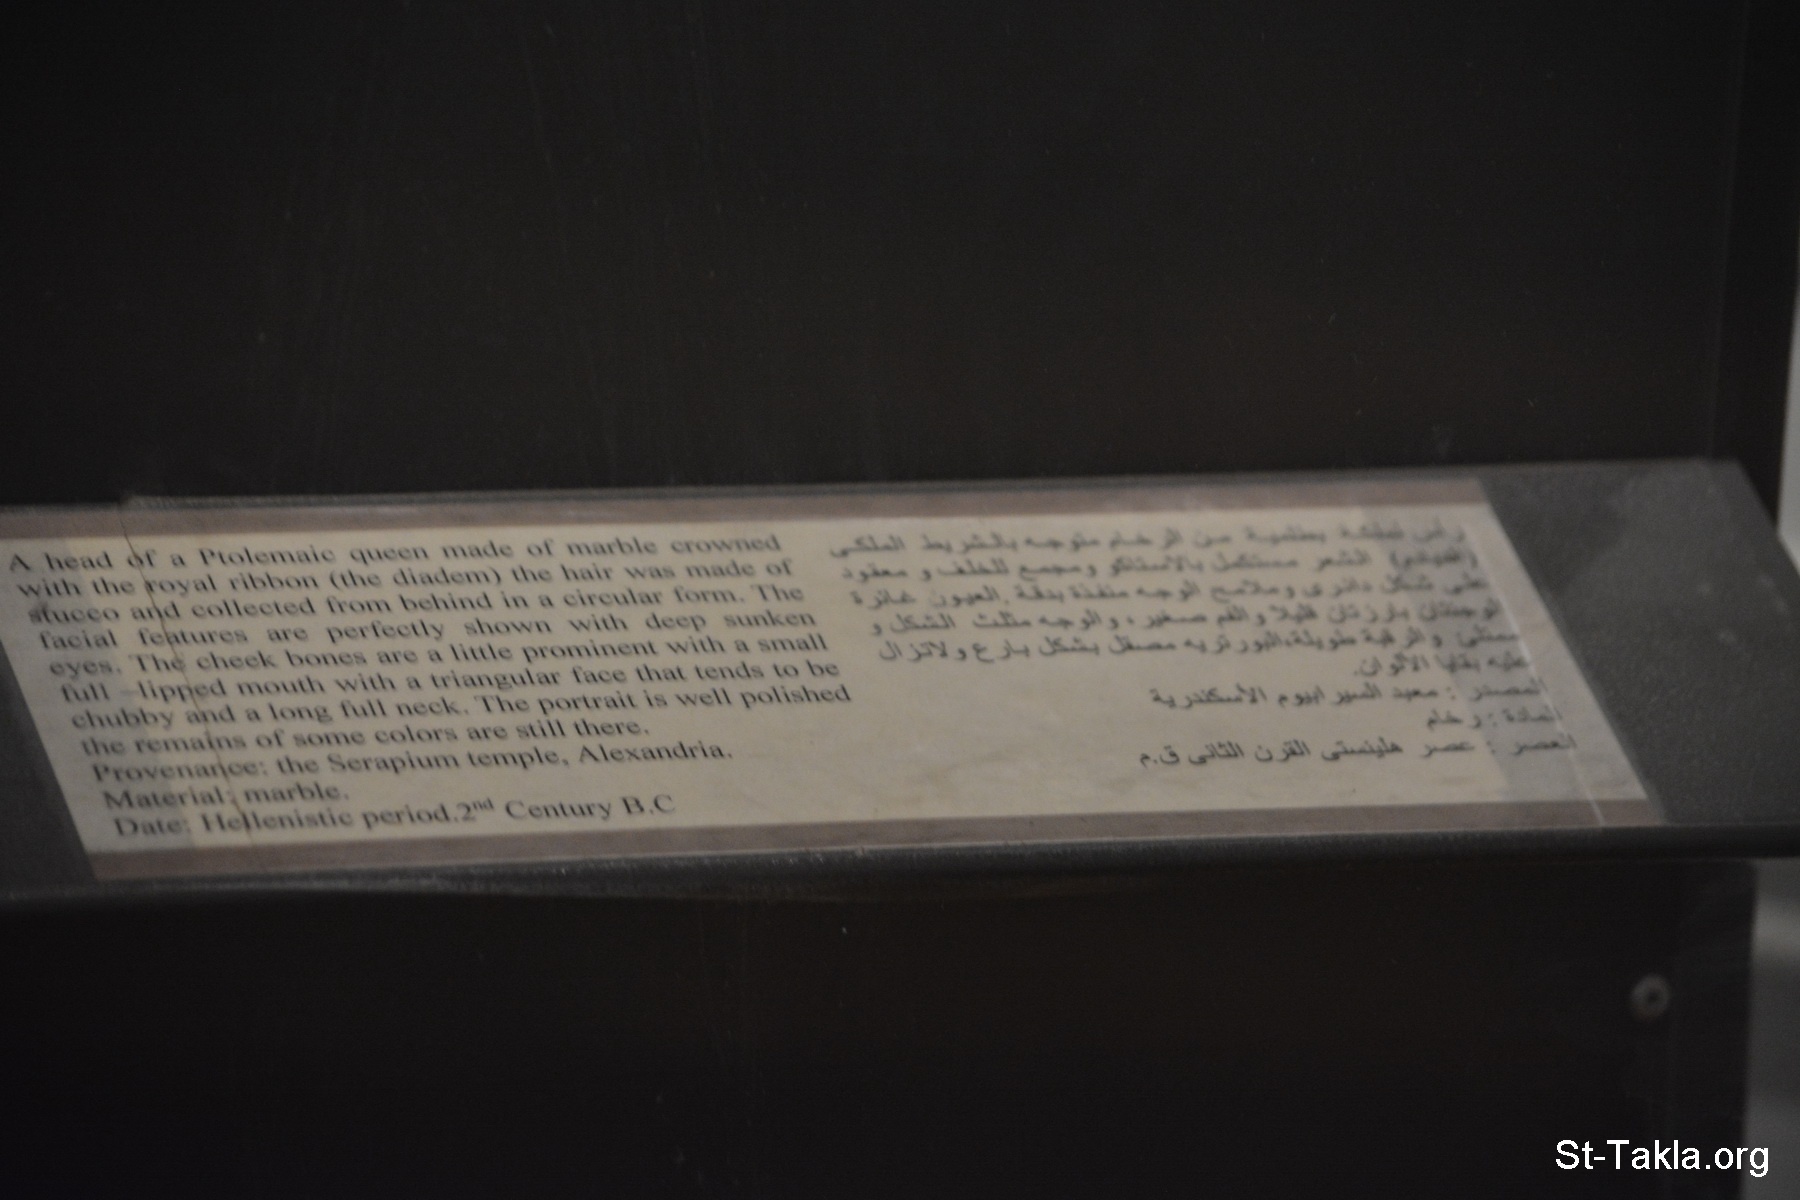 A head of a Ptolemaic queen made of marble crowned
with the royal ribbon (the diadem) the hair was made of
stucco and collected from behind in a circular form. The
facial features are perfectly shown with deep sunken
eyes. The cheek bones are a little prominent with a small
full –lipped mouth with a triangular face that tends to be
chubby and a long full neck. The portrait is well polished
the remains of some colors are still there.
Provenance: the Serapium temple, Alexandria.
Material: marble.
Date: Hellenistic period.2nd Century B.C
رأس لملكة بطلمية من الرخام متوجه بالشريط الملكى
الشعر مستكمل بالاستكو ومجمع للخلف و معقود
على شكل دائرى وملامح الوجه منفذة بدقة .العيون غائرة
الوجنتان بارزتان قليلا والفم صغير، والوجه مثلث الشكل و
ممتلئ والرقبة طويلة،البورتريه مصقل بشكل بارع ولاتزال
عليه بقايا الألوان.
المصدر : معبد السيرابيوم الأسكندرية
المادة : رخام
العصر : عصر هلينستى القرن الثانى ق.م
St-Takla.org